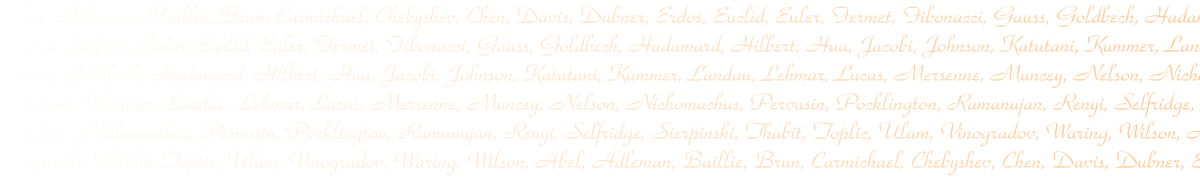 Adleman, Baillie, Brun, Carmichael, Chebyshev, Chen, Davis, Dubner, Erdos, Euclid, Euler, Fermet, Fibonacci, Gauss, Goldbech,
Dubner, Erdos, Euclid, Euler, Fermet, Fibonacci, Gauss, Goldbech, Hadamard, Hilbert, Hua, Jacobi, Johnson, Katutani, Kummer,
Goldbech, Hadamard, Hilbert, Hua, Jacobi, Johnson, Katutani, Kummer, Landau, Lehmar, Lucas, Mersenne, Muncey, Nelson,
Kummer, Landau, Lehmar, Lucas, Mersenne, Muncey, Nelson, Nichomachus, Pervusin, Pocklington, Ramanujan, Renyi, Selfridge,
Nichomachus, Pervusin, Pocklington, Ramanujan, Renyi, Selfridge, Sierpinski, Thabit, Toplic, Ulam, Vinogradov, Waring, Wilson,
Thabit, Toplic, Ulam, Vinogradov, Waring, Wilson, Abel, Adleman, Baillie, Brun, Carmichael, Chebyshev, Chen, Davis, Dubner,